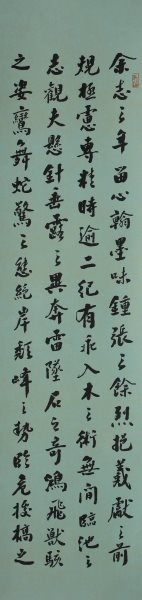 余志之年留心翰墨味鍾張之餘烈挹羲獻之前
規極慮專精時逾二紀有乖入木之術無間臨池之
志觀夫懸針垂露之異奔雷墜石之奇鴻飛獸駭
之姿鸞舞蛇驚之態絕岸頹峰之勢臨危據槁之